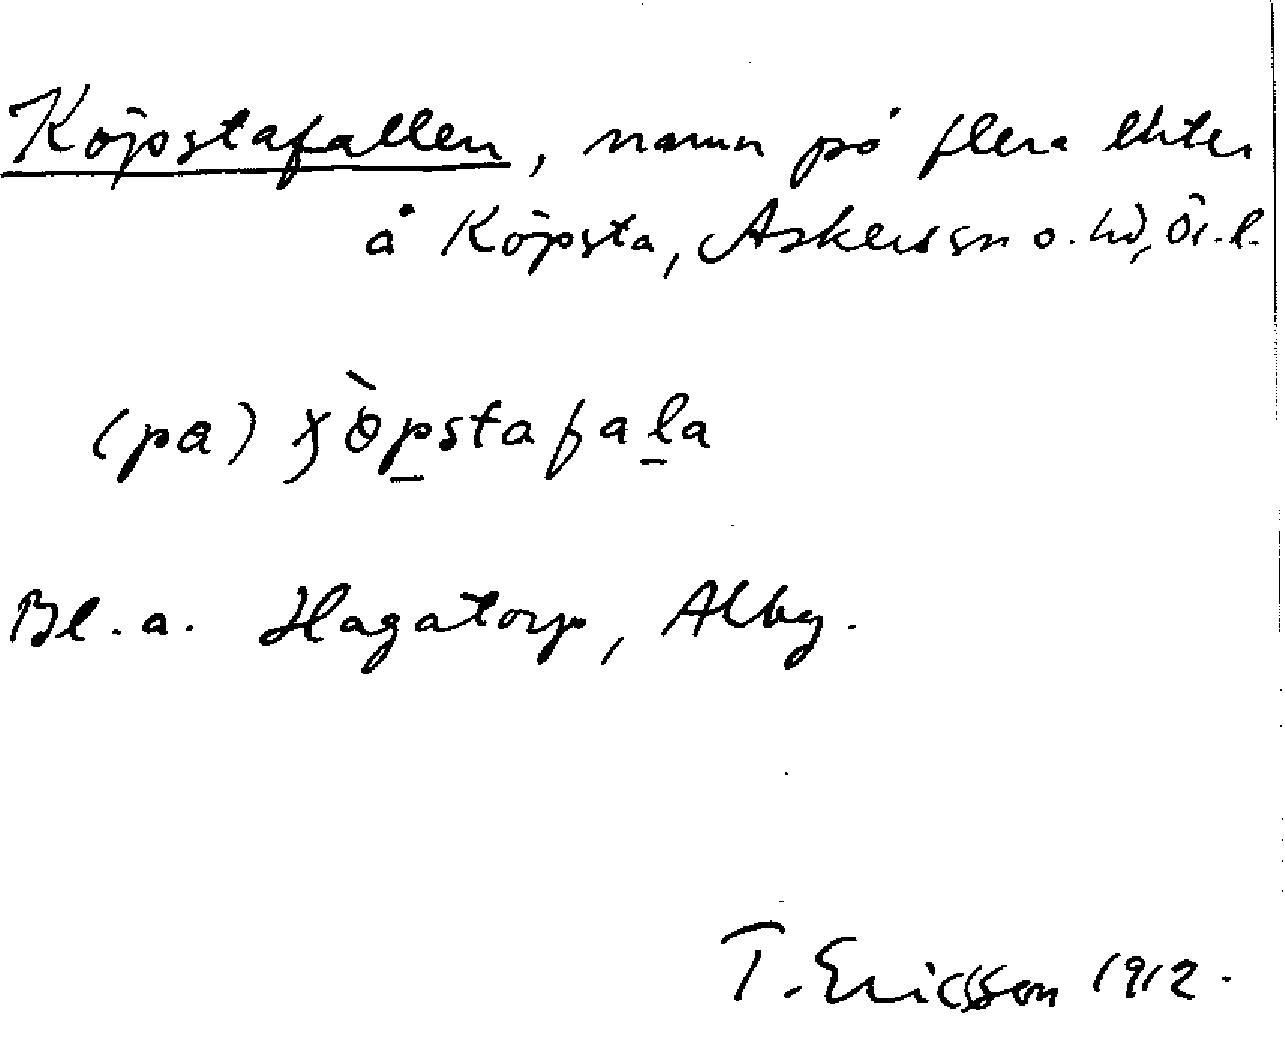 Köpstafallen, namn på flera lhter
å Köpsta, Askers sn o. hd, Ör. l.
(pa) ɧɵ̀pstafala
Bl. a. Hagatorp, Alby.
T. Ericsson 1912.